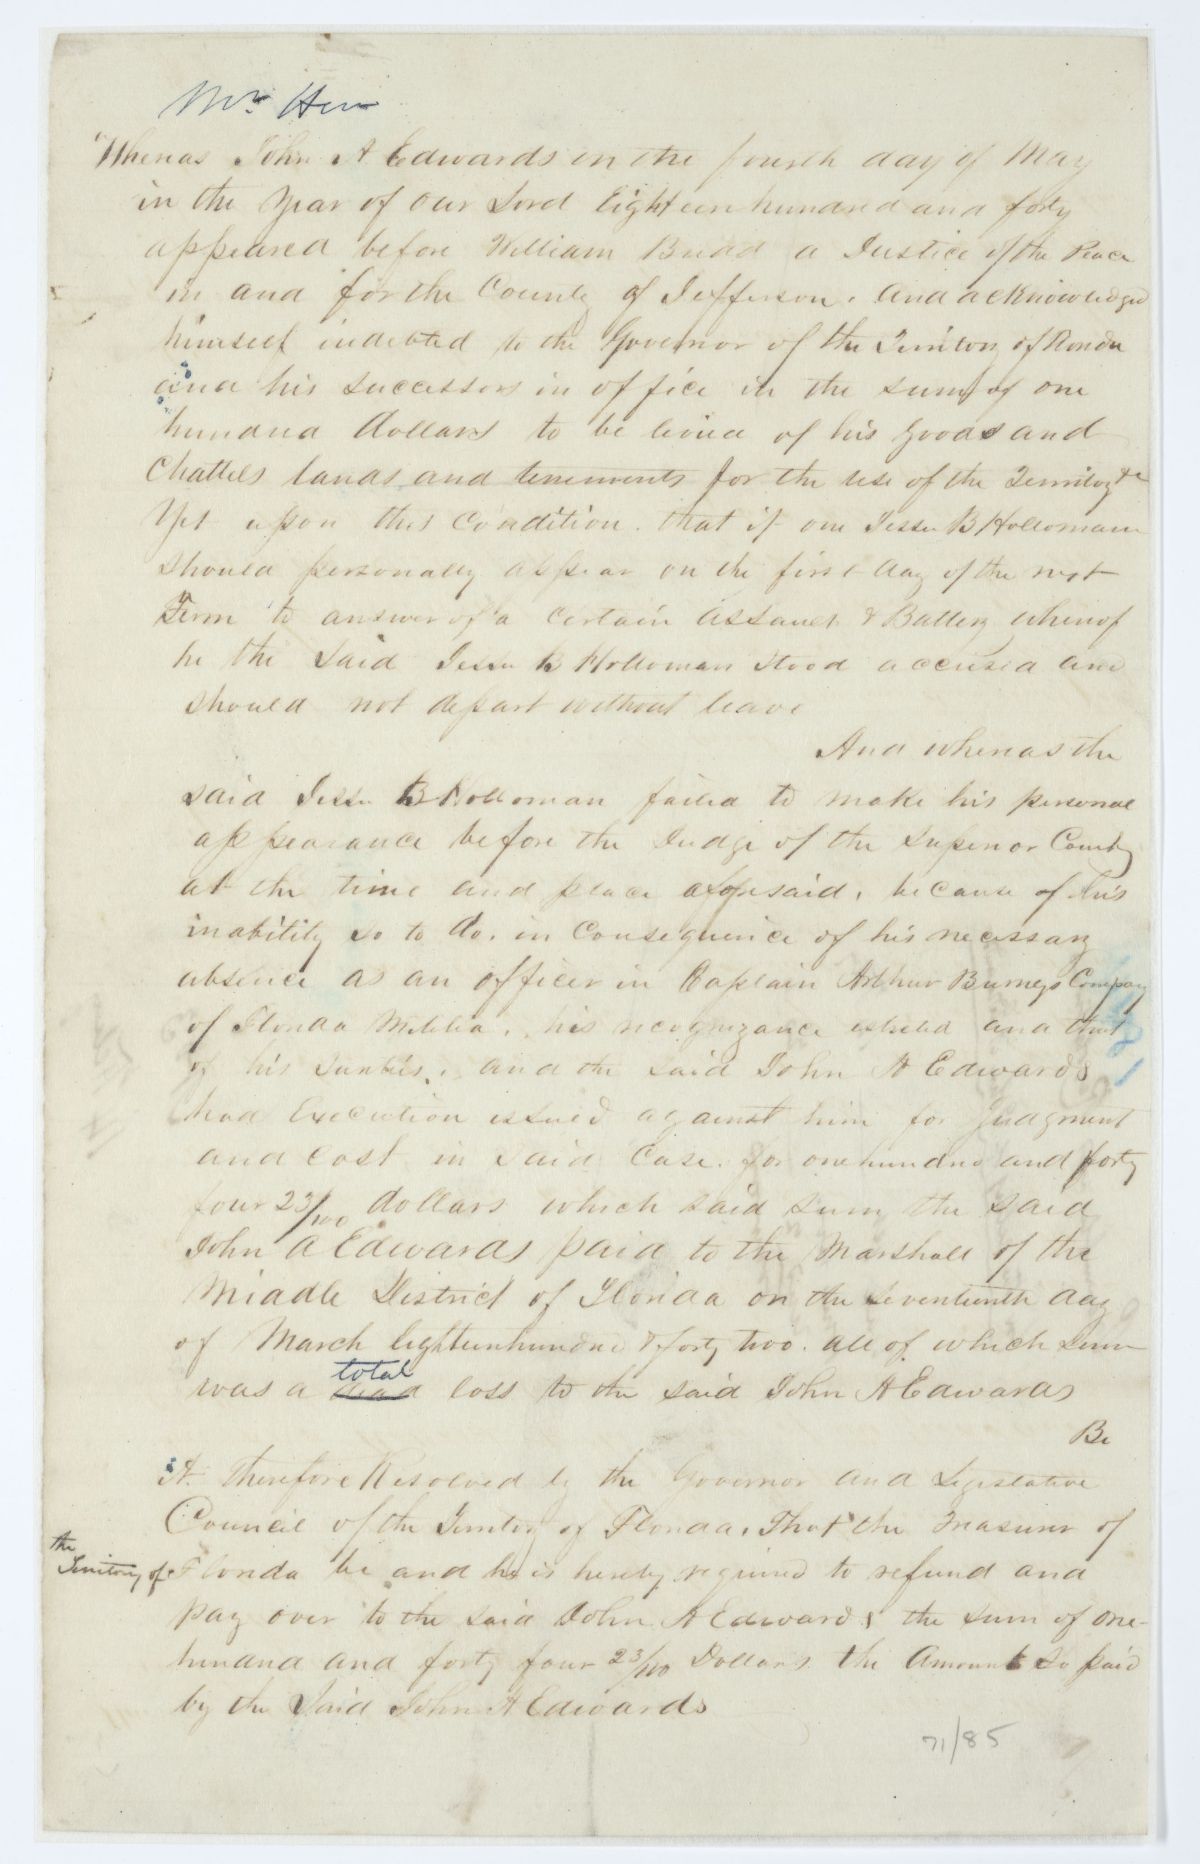 Mr.
Whereas John A Edwards on the fourth day of May
in the Year of our Lord Eighteen hundred and forty
appeared before William Budd a Justice of the Peace
in and for the County of Jefferson, and acknowledged
himself indebted to the Governor of the Territory of Florida
and his successors in office in the sum of one
hundred dollars to be levied of his goods and
Chattels lands and tenements for the use of the Territory &c
Yet upon this Condition. that if one Jesse B Holloman
should personally appear on the first day of the next
Term to answer of a certain assault & Battery whereof
he the said Jesse B Holloman stood accused and
should not depart without leave
And whereas the
said Jesse B Holloman failed to make his personal
appearance before the Judge of the Superior Court
at the time and place aforesaid, because of his
inability so to do. in Consequence of his necessary
absence as an officer in Captain Arthur Burneys Company
of Florida Militia, his recognizance estreted and that
of his sureties, and the said John A Edwards
had Execution issued against him for Judgment
and Cost in said Case. for one hundred and forty
four 23/100 dollars which said sum the said
John A Edwards paid to the Marshall of the
Middle District of Florida on the Seventeenth day
of March Eighteen hundred & forty two. all of which sum
total
was a dead loss to the said John A Edwards
Be
it therefore Resolved by the Governor and Legislative
Council of the Territory of Florida, That the Treasurer of
the Territory of Florida be and he is hereby required to refund and
pay over to the said John A Edwards the sum of one
hundred and forty four 23/100 Dollars the Amount so paid
by the Said John A Edwards
71/85